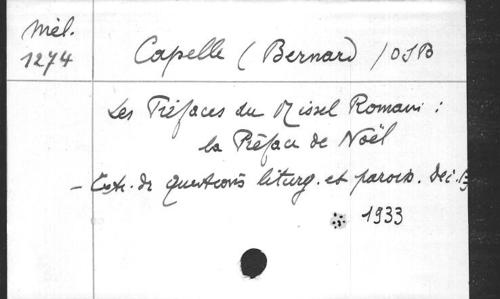 Mél.
1274
Capelle (Bernard) / OSB
Les Préfaces du Missel Romain :
la Préface de Noël
- Extr. de questions liturg. et paroiss. Déc.
1933